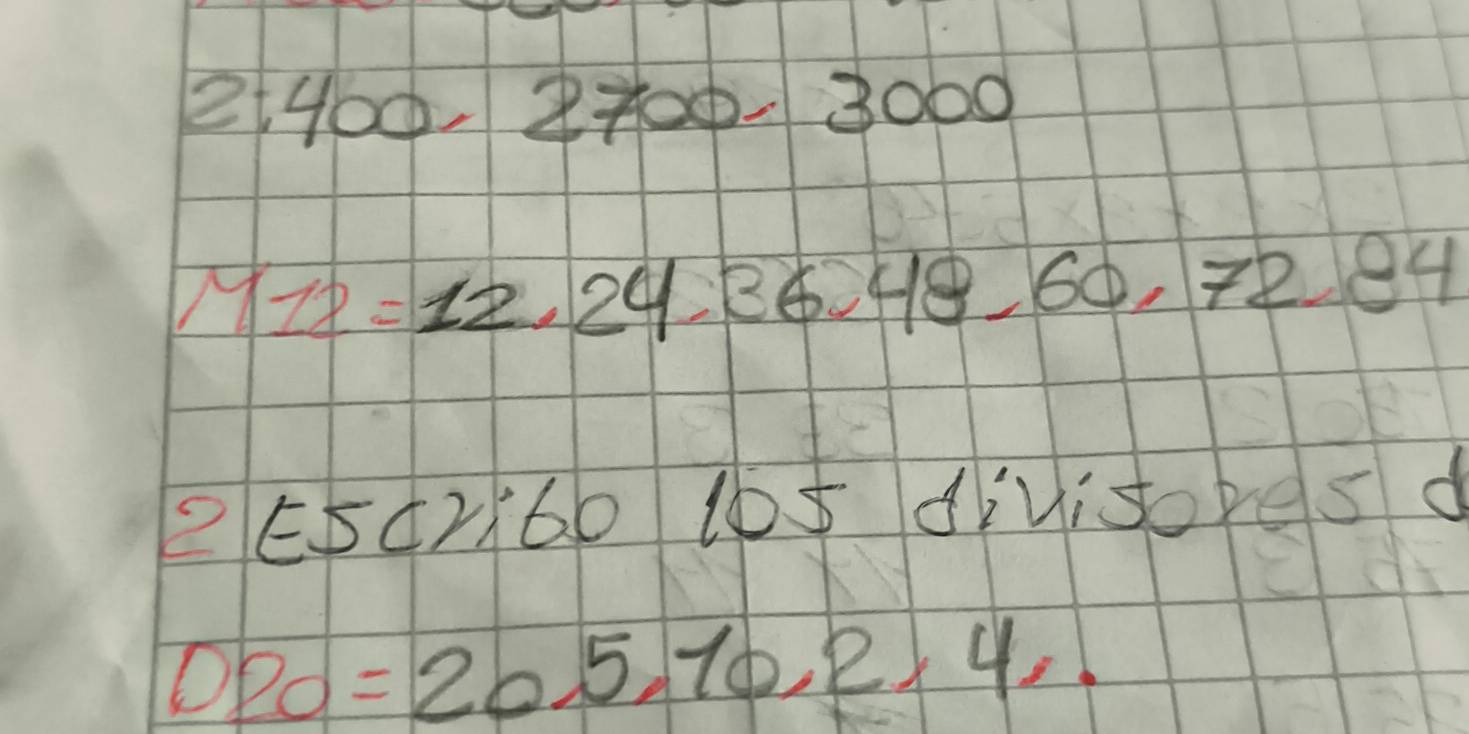 2;400, 2700, 3000
M12=12, 24, 36, 48, 60, 72, 84
2 Escribo los divisores d
D20=20, 5, 10, 2, 4, .